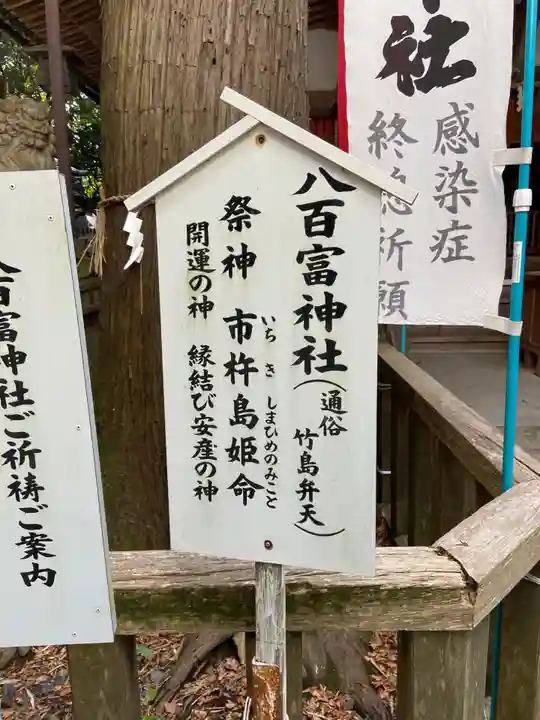 八百富神社(通俗 竹島弁天)
祭神 市杵島姫命
いち き しまひめのみこと
開運の神 縁結び安産の神
社
感染症
終息祈願
八百富神社ご祈祷ご案内